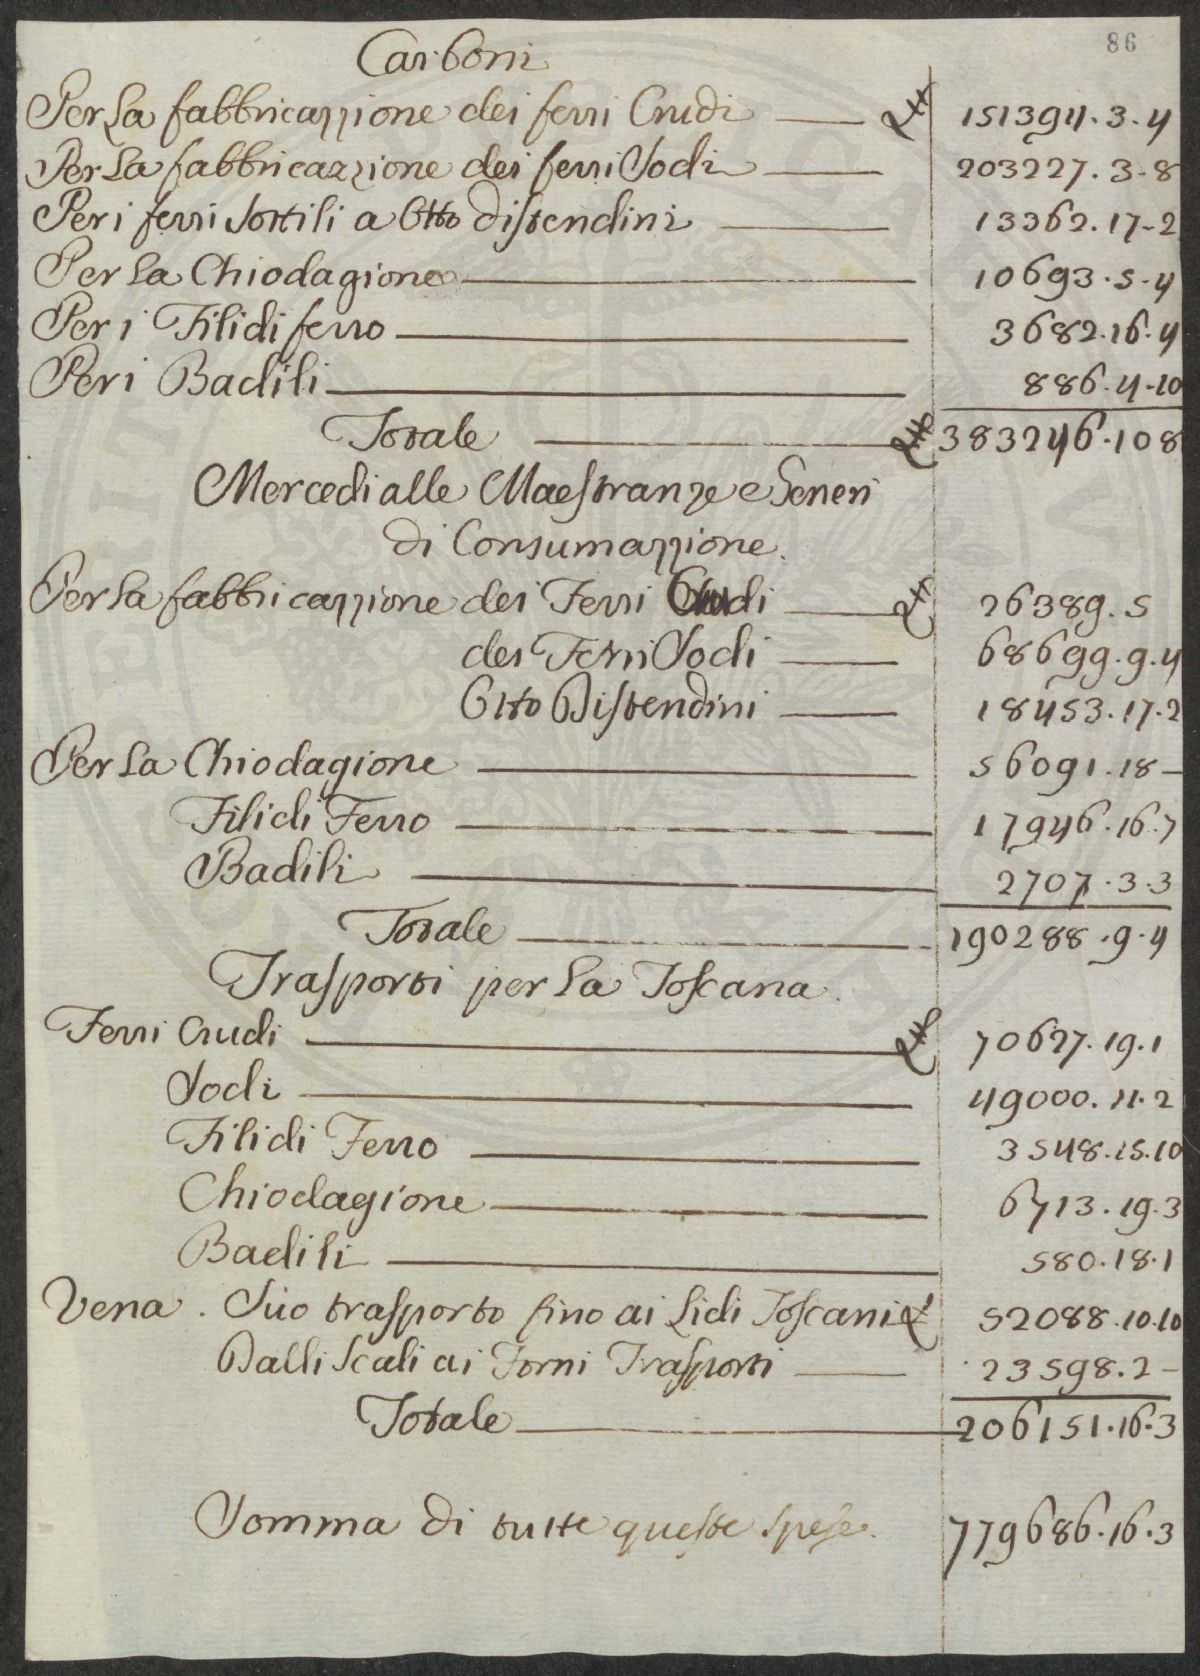 86
Carboni
Per La fabbricazzione dei ferri Crudi 151394.3.4
Per La fabbricazzione dei ferri Sodi 203227.3.8
Per i ferri Sottili a Otto Distendini 13362.17.2
Per La Chiodagione 10693.5.4
Per i Fili di ferro 3682.16.4
Per i Badili 886.4.10
Totale 383246.10 8
Mercedi alle Maestranze e Generi
di Consumazzione.
Per La fabbricazzione dei Ferri Crudi 26389.5
dei Ferri Sodi 68699.9.4
Otto Distendini 18453.17.2
Per La Chiodagione 56091.18 –
Fili di Ferro 17946.16.7
Badili 2707.3.3
Totale 190288.9.4
Trasporti per La Toscana.
Ferri Crudi 70627.19.1
Sodi 49000.11.2
Fili di Ferro 3548.15.10
Chiodagione 6713.19.3
Badili 580.18.1
Vena. Suo trasporto fino ai Lidi Toscani 52088.10.10
Dalli Scali ai Forni Trasporti 23598.2 –
Totale 206151.16.3
Somma di tutte queste spese. 779686.16.3